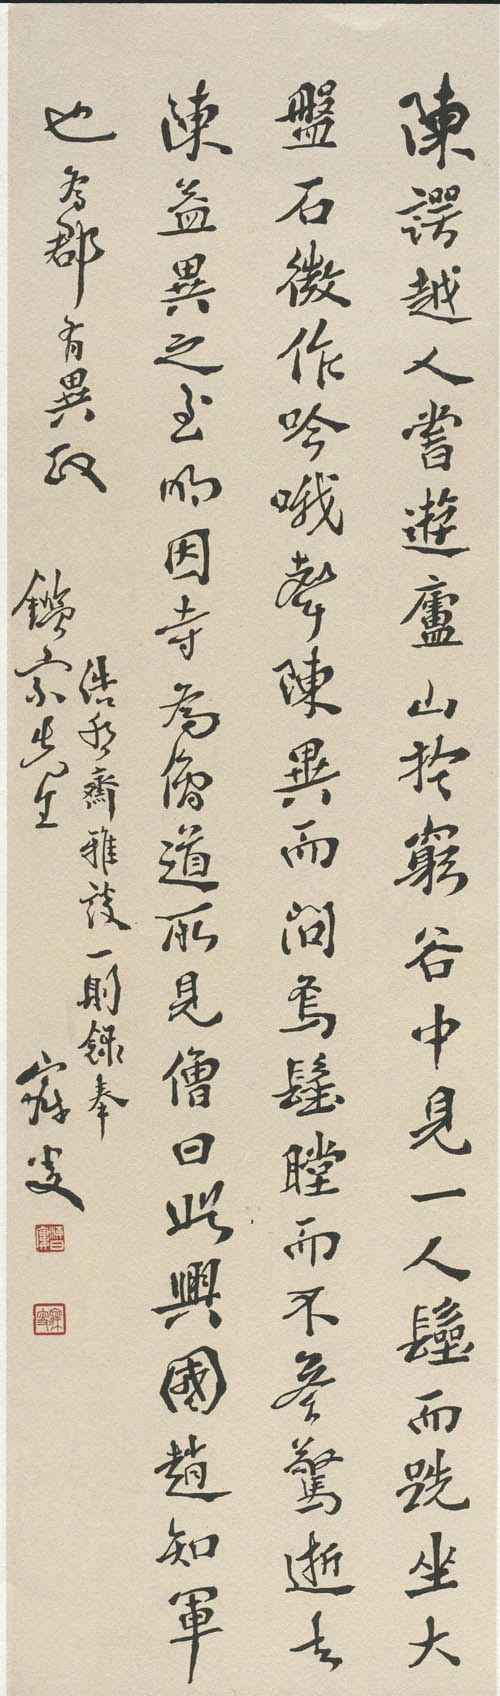 陳諤越人嘗遊廬山於窮谷中見一人而跣坐大
盤石微作吟哦聲陳異而問焉瞠而不答驚逝去
陳益異之至明因寺為僧道所見僧曰此興國趙知軍
也為郡有異政
浩然齋雅談一則錄奉
鑑宗先生
寐叟